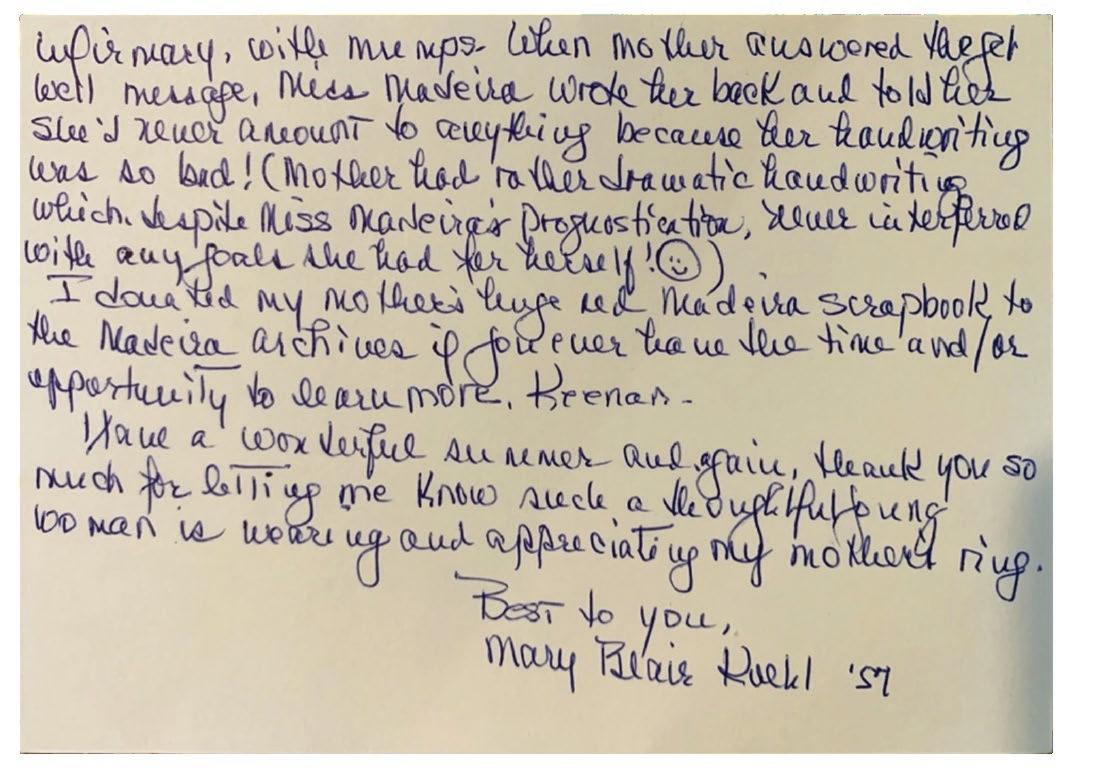 infirmary, with mumps. When mother answered the get
well message, Miss Madeira wrote her back and told her
she'd never amount to anything because her handwriting
was so bad! (Mother had rather dramatic handwriting
which, despite Miss Madeira's prognostication, never interferred
with any goals she had for herself! ☺)
I donated my mother's huge red Madeira scrapbook to
the Madeira archives if you ever have the time and/or
opportunity to learn more, Keenan.
Have a wonderful summer and again, thank you so
much for letting me know such a thoughtful young
woman is wearing and appreciating my mother's ring.
Best to you,
Mary Blair Kuehl '57